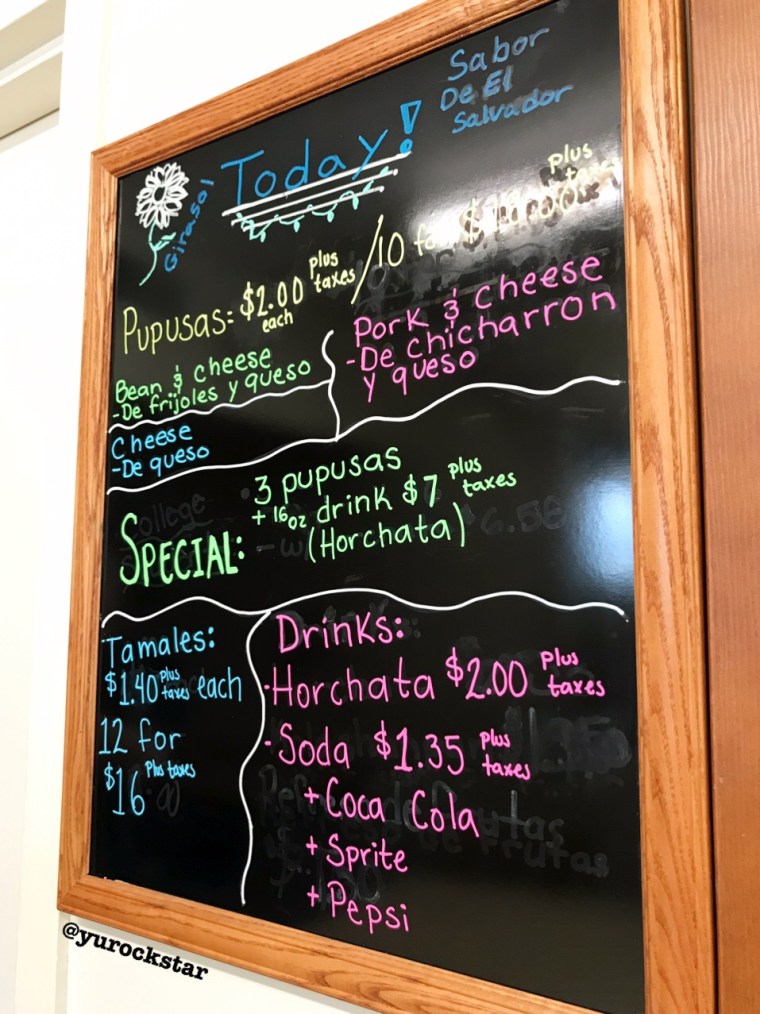 Sabor
De El
Salvador
Today!
Girasol
Pupusas: $2.00 each plus taxes / 10 for $ plus
Bean & cheese
- De frijoles y queso
Pork & cheese
- De chicharron
y queso
Cheese
- De queso
SPECIAL:
• 3 pupusas
+ 16oz drink $7 plus taxes
(Horchata)
Tamales:
$1.40 plus taxes each
12 for
$16 Plus taxes
Drinks:
- Horchata $2.00 Plus taxes
- Soda $1.35 Plus taxes
+ Coca Cola
+ Sprite
+ Pepsi
@yurockstar